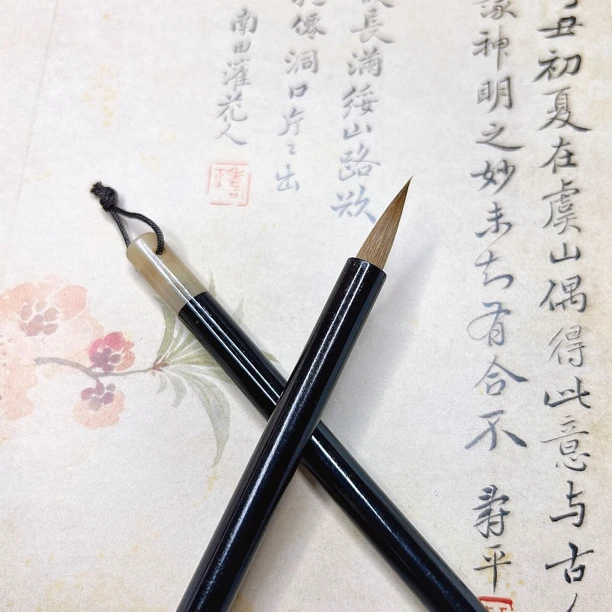 丑初夏在虞山偶得此意与古
神明之妙未知有合不 壽平
長滿綏山路欲
洞口片〻出
南田灌花人